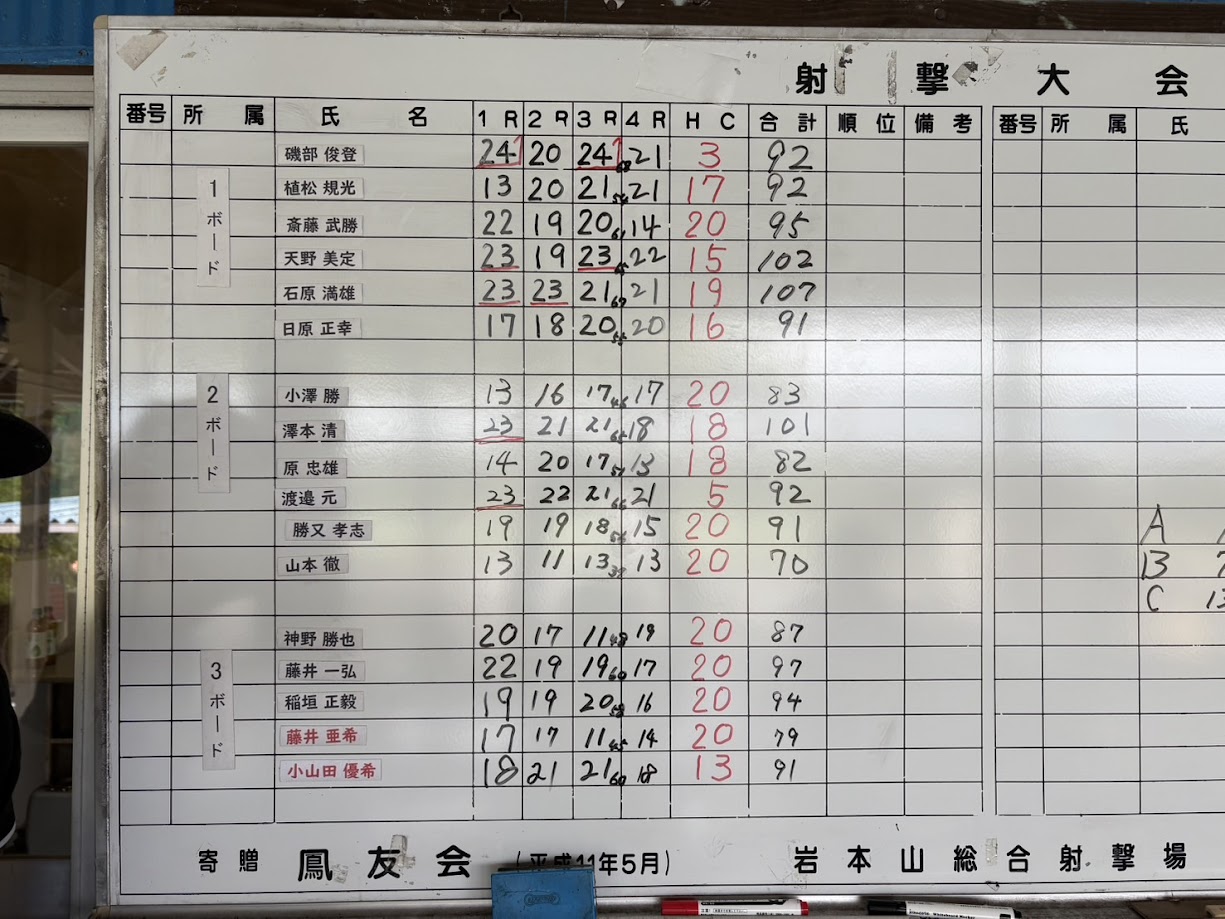 射撃大会
番号 所属 氏名 1R 2R 3R 4R HC 合計 順位 備考 番号 所属 氏
1ボード
磯部 俊登 24 20 24 68 21 3 92
植松 規光 13 20 21 54 21 17 92
斎藤 武勝 22 19 20 61 14 20 95
天野 美定 23 19 23 65 22 15 102
石原 満雄 23 23 21 67 21 19 107
日原 正幸 17 18 20 55 20 16 91
2ボード
小澤 勝 13 16 17 46 17 20 83
澤本 清 23 21 21 65 18 18 101
原 忠雄 14 20 17 51 13 18 82
渡邉 元 23 22 21 66 21 5 92
勝又 孝志 19 19 18 56 15 20 91
山本 徹 13 11 13 37 13 20 70
3ボード
神野 勝也 20 17 11 48 19 20 87
藤井 一弘 22 19 19 60 17 20 97
稲垣 正毅 19 19 20 58 16 20 94
藤井 亜希 17 17 11 45 14 20 79
小山田 優希 18 21 21 60 18 13 91
A
B
C
寄贈 鳳友会 (平成11年5月) 岩本山総合射撃場